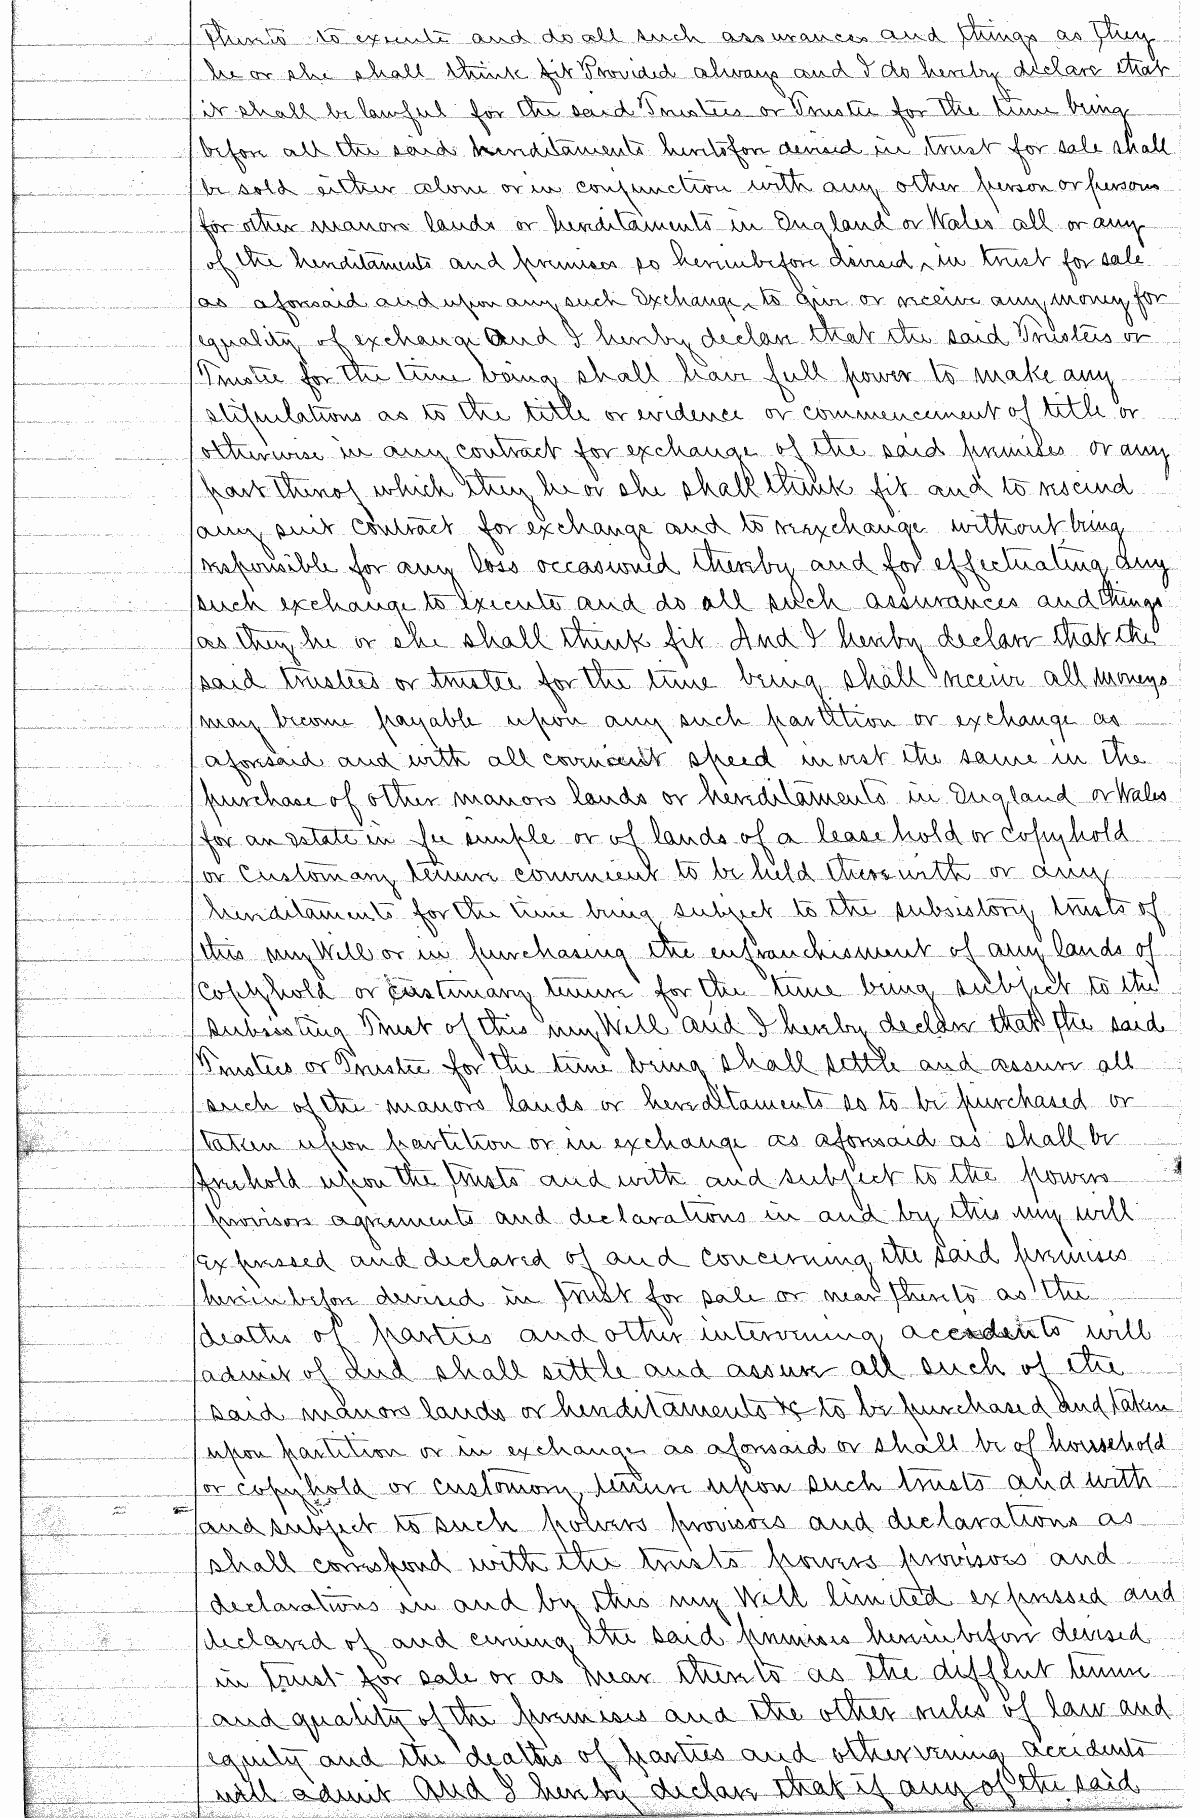 thereto to execute and do all such assurances and things as they
he or she shall think fit Provided always and I do hereby declare that
it shall be lawful for the said Trustees or Trustee for the time being
before all the said hereditaments heretofore devised in trust for sale shall
be sold either alone or in conjunction with any other person or persons
for other manors lands or hereditaments in England or Wales all or any
of the hereditaments and premises so hereinbefore devised in trust for sale
as aforesaid and upon any such Exchange to give or receive any money for
equality of exchange And I hereby declare that the said Trustees or
Trustee for the time being shall have full power to make any
stipulations as to the title or evidence or commencement of title or
otherwise in any contract for exchange of the said premises or any
part thereof which they he or she shall think fit and to rescind
any suit contract for exchange and to reexchange without being
responsible for any loss occasioned thereby and for effectuating any
such exchange to execute and do all such assurances and things
as they he or she shall think fit And I hereby declare that the
said trustees or trustee for the time being shall receive all moneys
may become payable upon any such partition or exchange as
aforesaid and with all convenient speed invest the same in the
purchase of other manors lands or hereditaments in England or Wales
for an estate in fee simple or of lands of a leasehold or copyhold
or Customary tenure convenient to be held therewith or any
hereditaments for the time being subject to the subsistory trusts of
this my Will or in purchasing the enfranchisment of any lands of
copyhold or customary tenure for the time being subject to the
subsisting Trust of this my Will and I hereby declare that the said
Trustees or Trustee for the time being shall settle and assure all
such of the manors lands or hereditaments so to be purchased or
taken upon partition or in exchange as aforesaid as shall be
freehold upon the trusts and with and subject to the powers
provisors agreements and declarations in and by this my will
expressed and declared of and concerning the said premises
hereinbefore devised in trust for sale or near thereto as the
deaths of parties and other intervening accedents will
admit of And shall settle and assure all such of the
said manors lands or hereditaments & to be purchased and taken
upon partition or in exchange as aforesaid or shall be of household
or copyhold or customory tenure upon such trusts and with
and subject to such powers provisoes and declarations as
shall correspond with the trusts powers provisoes and
declarations in and by this my Will limited expressed and
declared of and cerning the said premises hereinbefore devised
in trust for sale or as near thereto as the diffent tenure
and quality of the premises and the other rules of law and
equity and the deaths of parties and othervening accidents
will admit And I hereby declare that if any of the said